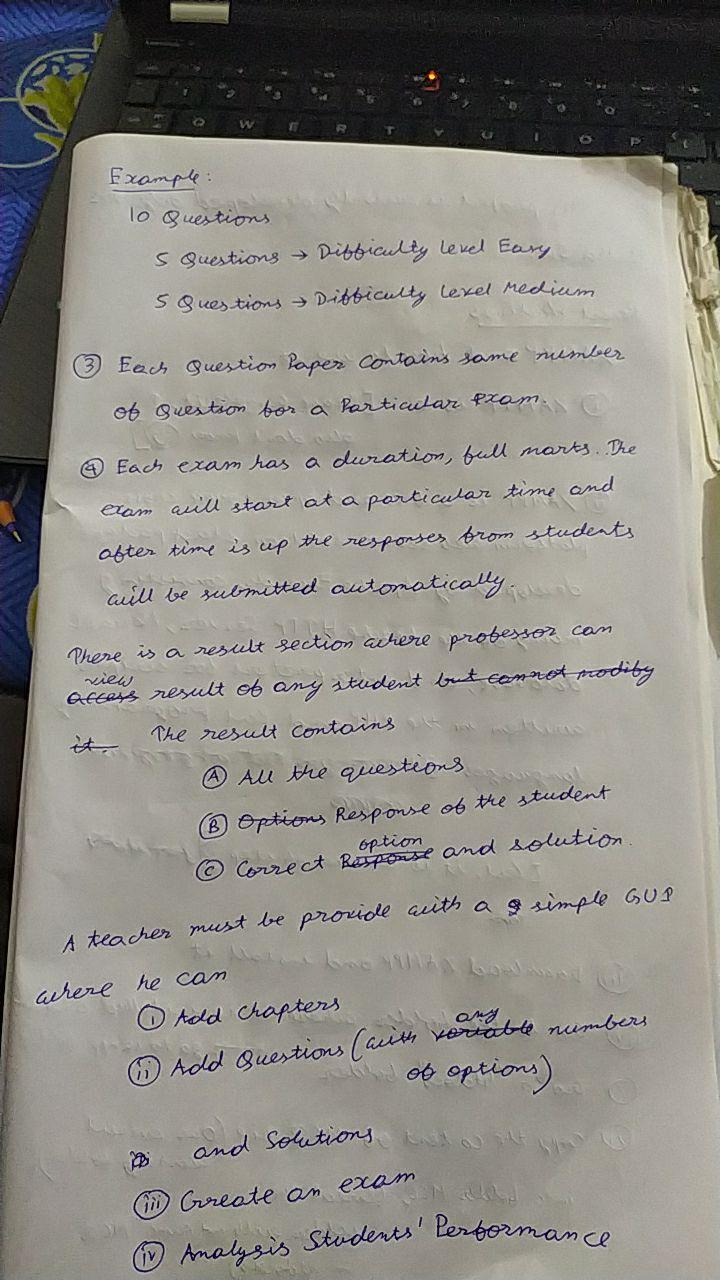 Example:
10 Questions
5 Questions → Difficulty level Easy
5 Questions → Difficulty level Medium
③ Each Question Paper contains same number
of Question for a Particular Exam.
④ Each exam has a duration, full marks. The
exam will start at a particular time and
after time is up the responses from students
will be submitted automatically.
There is a result section where professor can
view
access result of any student but cannot modify
it. The result contains
Ⓐ All the questions
Ⓑ Options Response of the student
option
Ⓒ Correct Response and solution.
A teacher must be provide with a simple GUI
where he can
ⓘ Add chapters
any
ii Add Questions (with variable numbers
of options)
and Solutions
iii Create an exam
iv Analysis Students' Performance